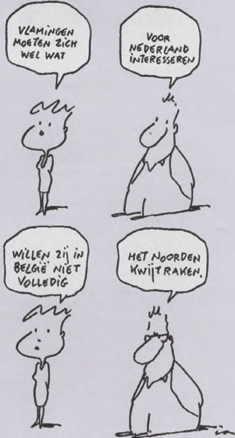 VLAMINGEN
MOETEN ZICH
WEL WAT
VOOR
NEDERLAND
INTERESSEREN
WILLEN ZIJ IN
BELGIË NIET
VOLLEDIG
HET NOORDEN
KWIJTRAKEN.